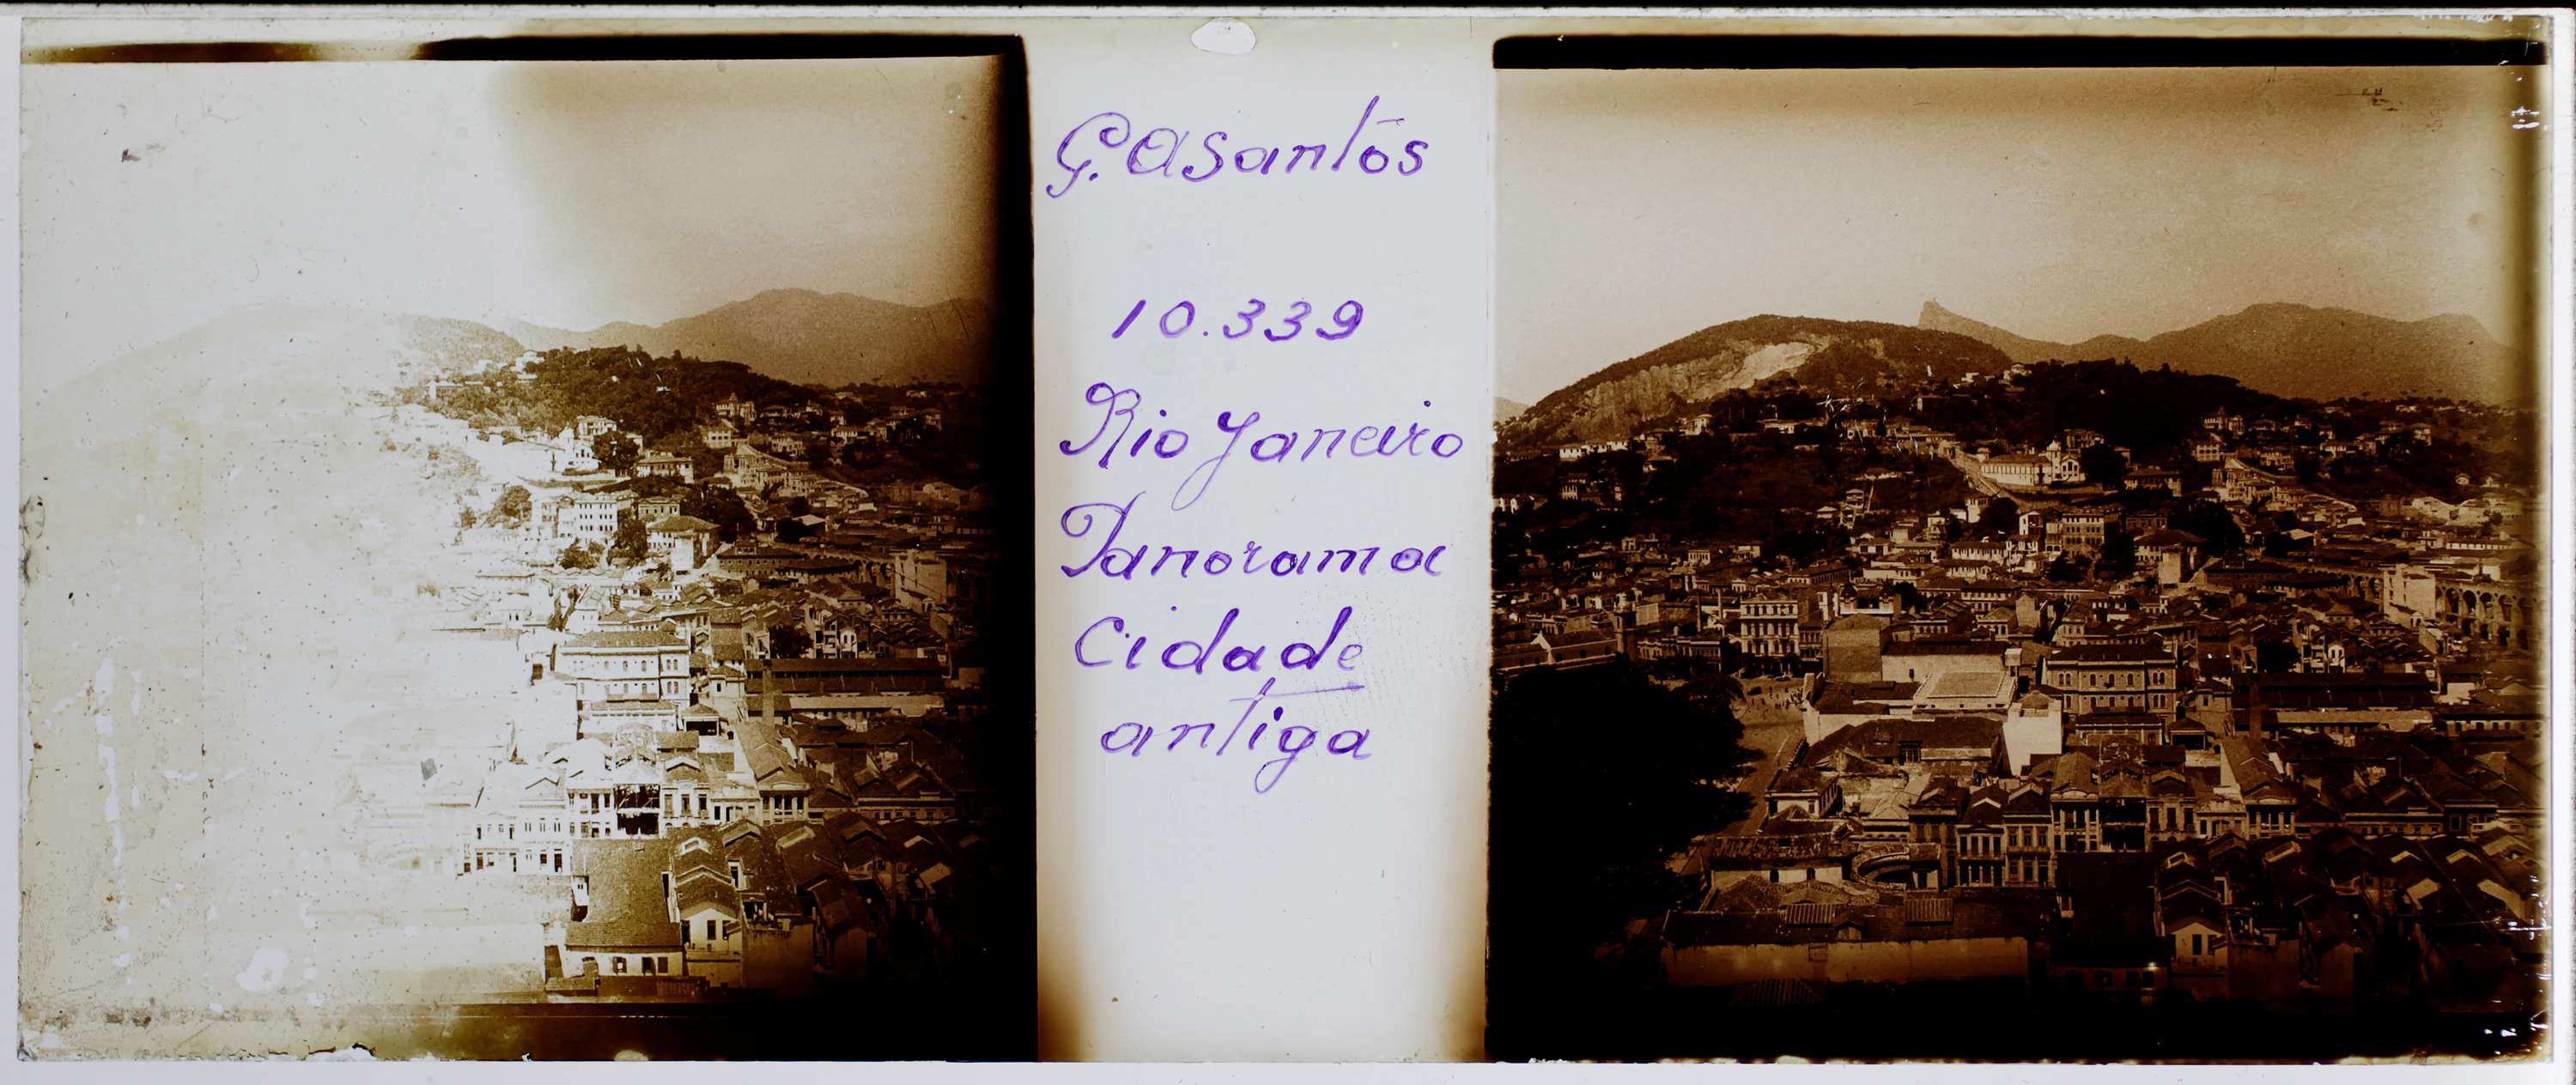 G. A Santos
10.339
Rio Janeiro
Panorama
Cidade
antiga